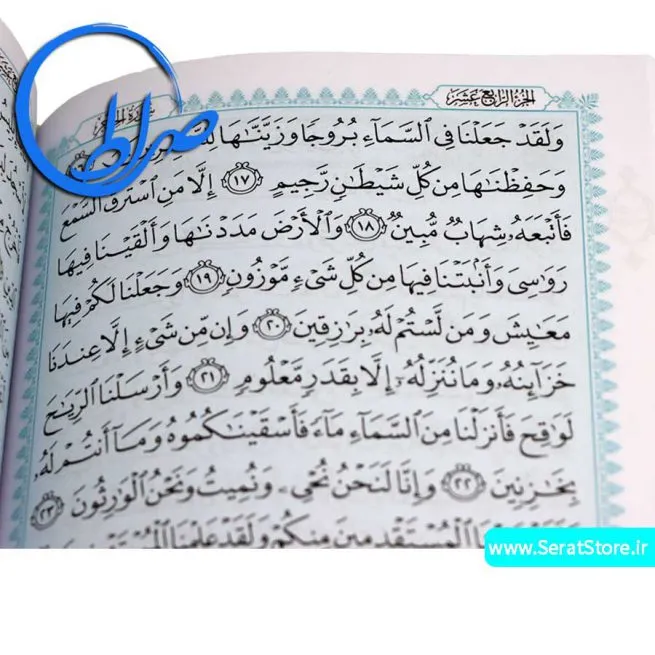 صراط
الجزء الرابع عشر
سورة الحجر
وَلَقَدْ جَعَلْنَا فِي السَّمَآءِ بُرُوجًا وَزَيَّنَّـٰهَا
وَحَفِظْنَـٰهَا مِن كُلِّ شَيْطَـٰنٍ رَّجِيمٍ ﴿١٧﴾ إِلَّا مَنِ ٱسْتَرَقَ ٱلسَّمْعَ
فَأَتْبَعَهُۥ شِهَابٌ مُّبِينٌ ﴿١٨﴾ وَٱلْأَرْضَ مَدَدْنَـٰهَا وَأَلْقَيْنَا فِيهَا
رَوَٰسِيَ وَأَنۢبَتْنَا فِيهَا مِن كُلِّ شَيْءٍ مَّوْزُونٍ ﴿١٩﴾ وَجَعَلْنَا لَكُمْ فِيهَا
مَعَـٰيِشَ وَمَن لَّسْتُمْ لَهُۥ بِرَٰزِقِينَ ﴿٢٠﴾ وَإِن مِّن شَيْءٍ إِلَّا عِندَنَا
خَزَآئِنُهُۥ وَمَا نُنَزِّلُهُۥٓ إِلَّا بِقَدَرٍ مَّعْلُومٍ ﴿٢١﴾ وَأَرْسَلْنَا ٱلرِّيَـٰحَ
لَوَٰقِحَ فَأَنزَلْنَا مِنَ ٱلسَّمَآءِ مَآءً فَأَسْقَيْنَـٰكُمُوهُ وَمَآ أَنتُمْ لَهُۥ
بِخَـٰزِنِينَ ﴿٢٢﴾ وَإِنَّا لَنَحْنُ نُحْيِۦ وَنُمِيتُ وَنَحْنُ ٱلْوَٰرِثُونَ ﴿٢٣﴾
ٱلْمُسْتَقْدِمِينَ مِنكُمْ وَلَقَدْ عَلِمْنَا
www.SeratStore.ir